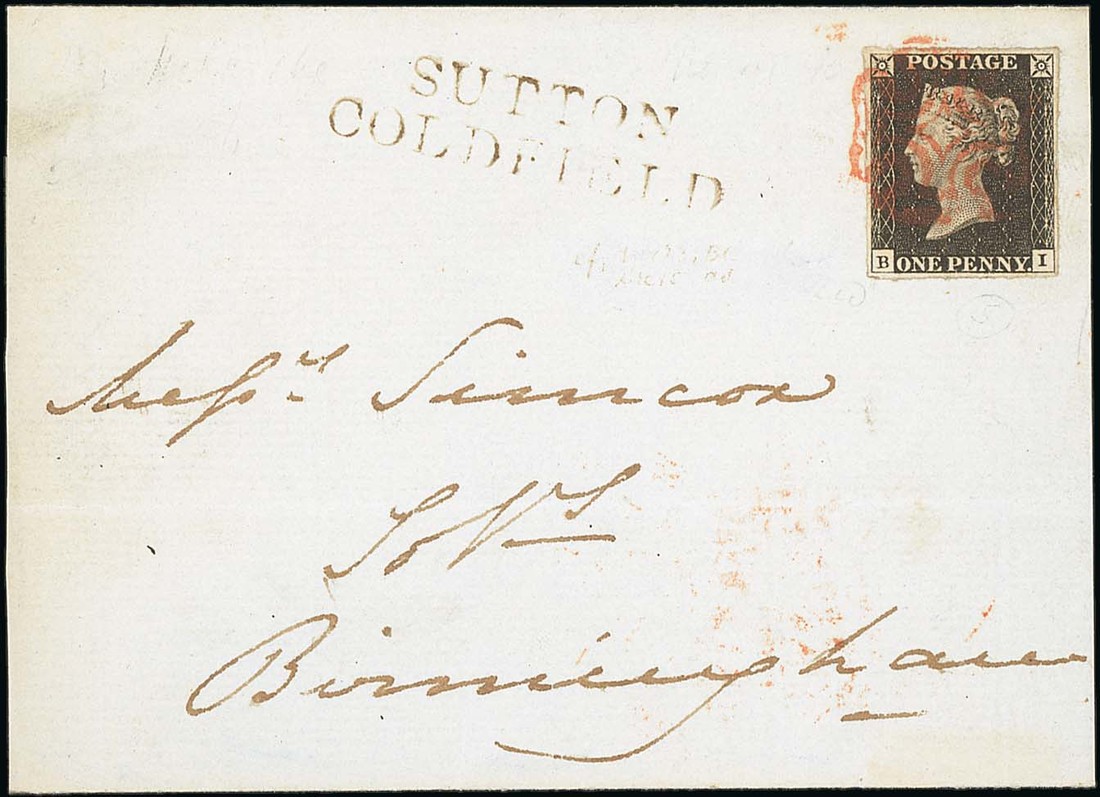 SUTTON
COLDFIELD
POSTAGE
B ONE PENNY. I
Messrs Simcox
Solrs
Birmingham
5